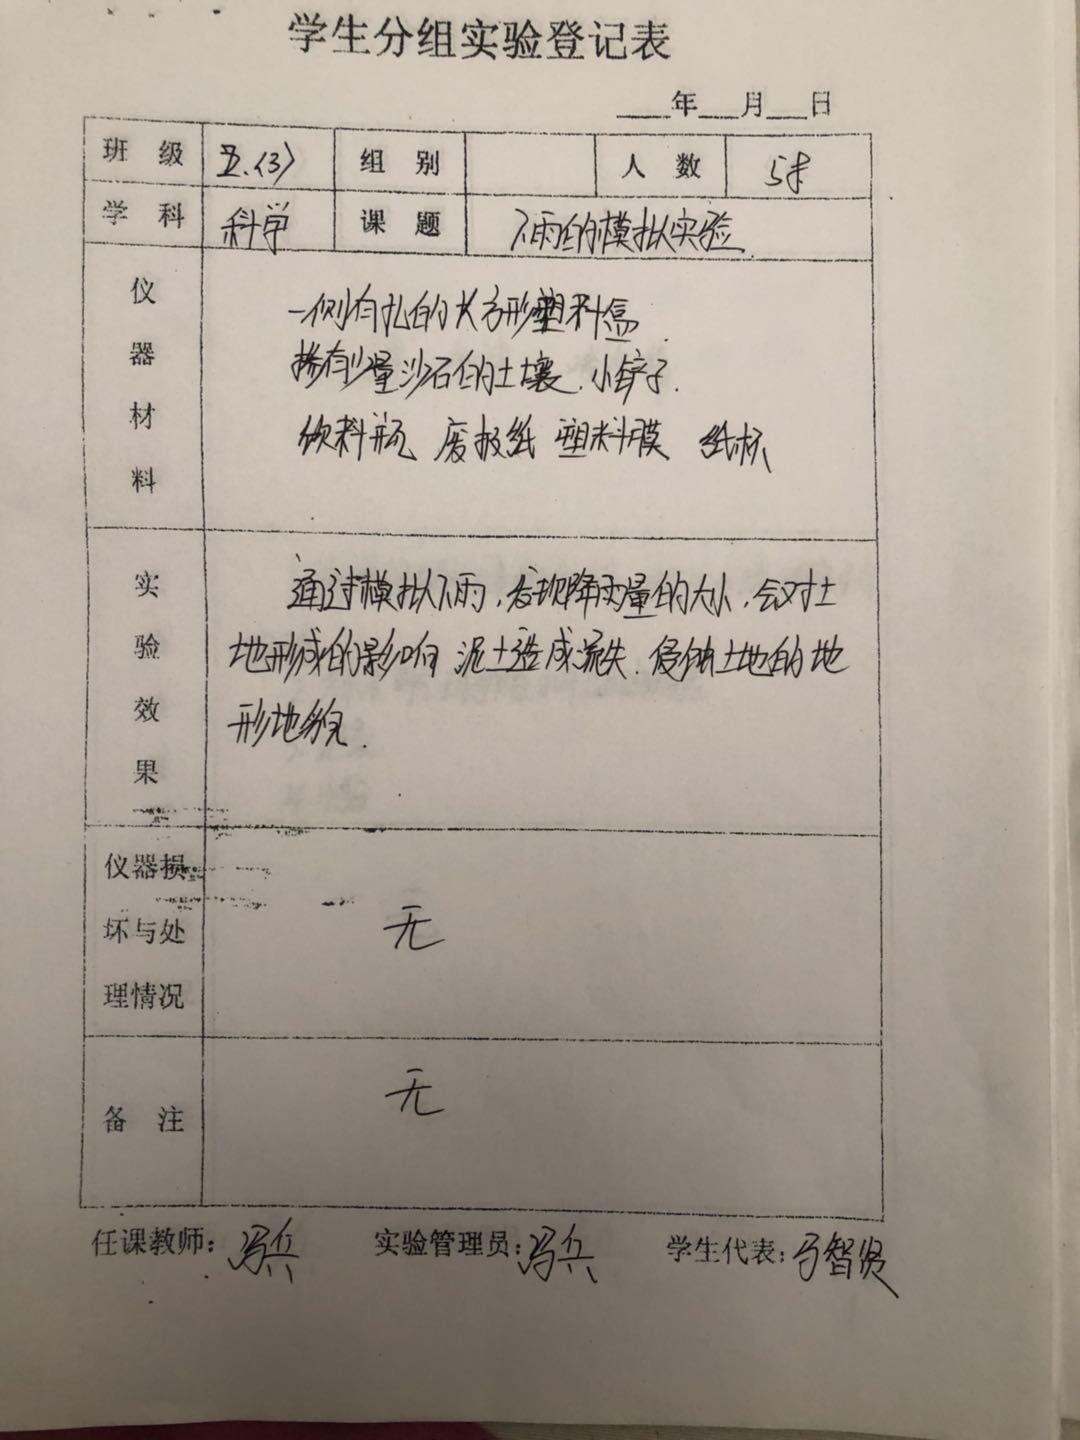 学生分组实验登记表
____年___月___日
班 级 五.(3) 组 别 人 数
学 科 科学 课 题 下雨的模拟实验
仪器材料
一侧有孔的长方形塑料盒.
掺有少量沙石的土壤.小铲子.
饮料瓶 废报纸 塑料膜 纸杯
实验效果
通过模拟下雨,发现降雨量的大小,会对土
地形成的影响 泥土造成流失.侵蚀土地的地
形地貌.
仪器损
坏与处
理情况
无
备 注
无
任课教师:冯兵 实验管理员:冯兵 学生代表:智贤